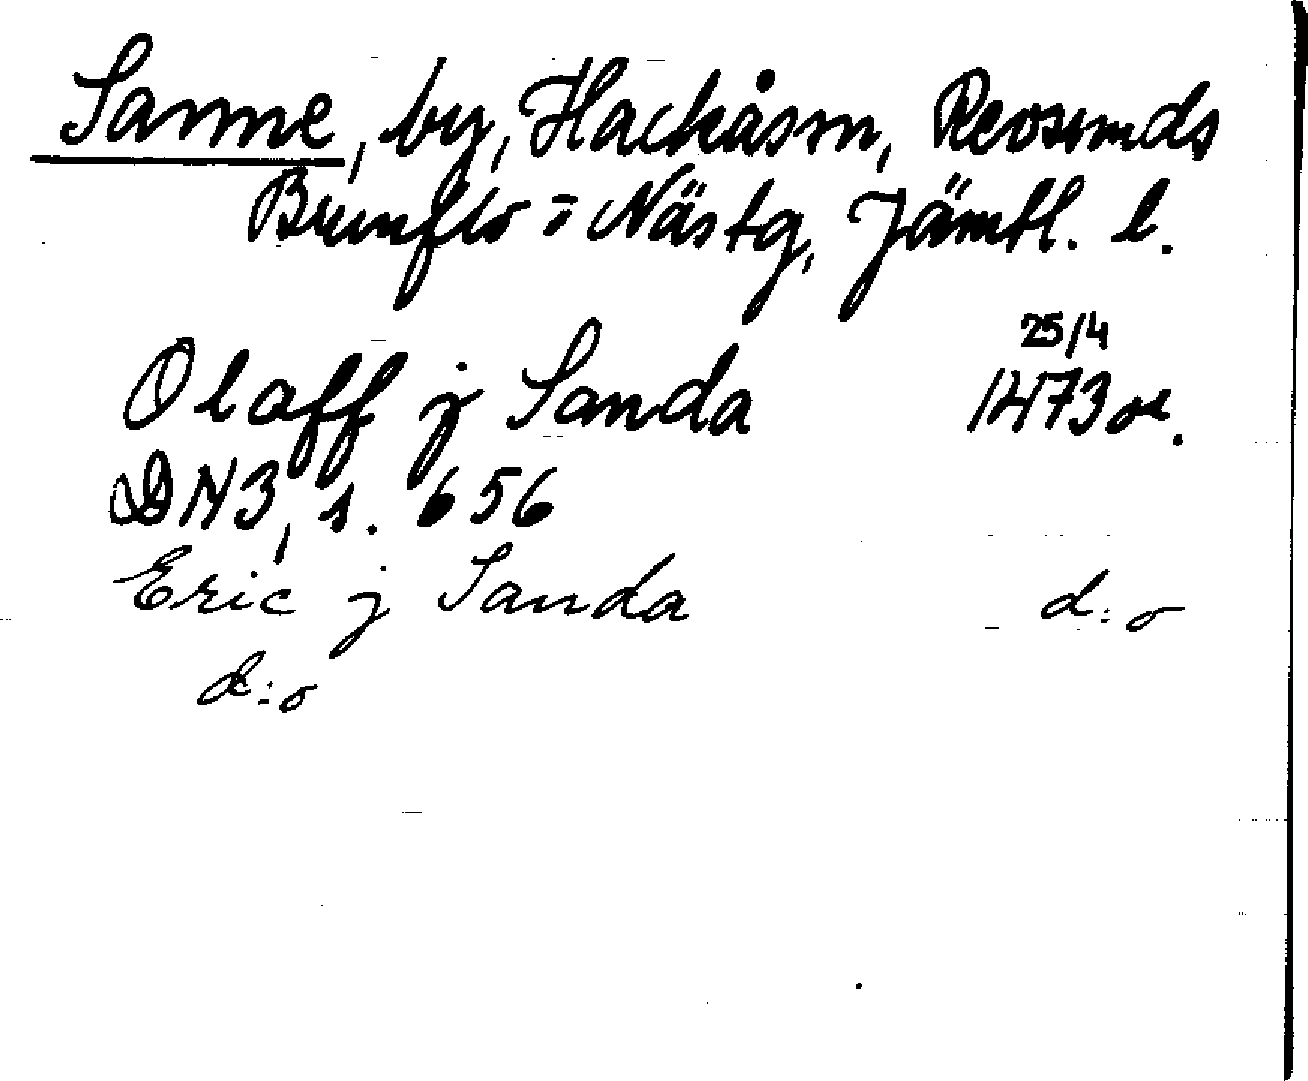 Sanne, by, Hackåssn, Revsunds
Brunflo o Nästg, Jämtl. l.
Olaff j Sanda 25/4 1473 or.
DN 3, s. 656
Eric j Sanda d:o
d:o